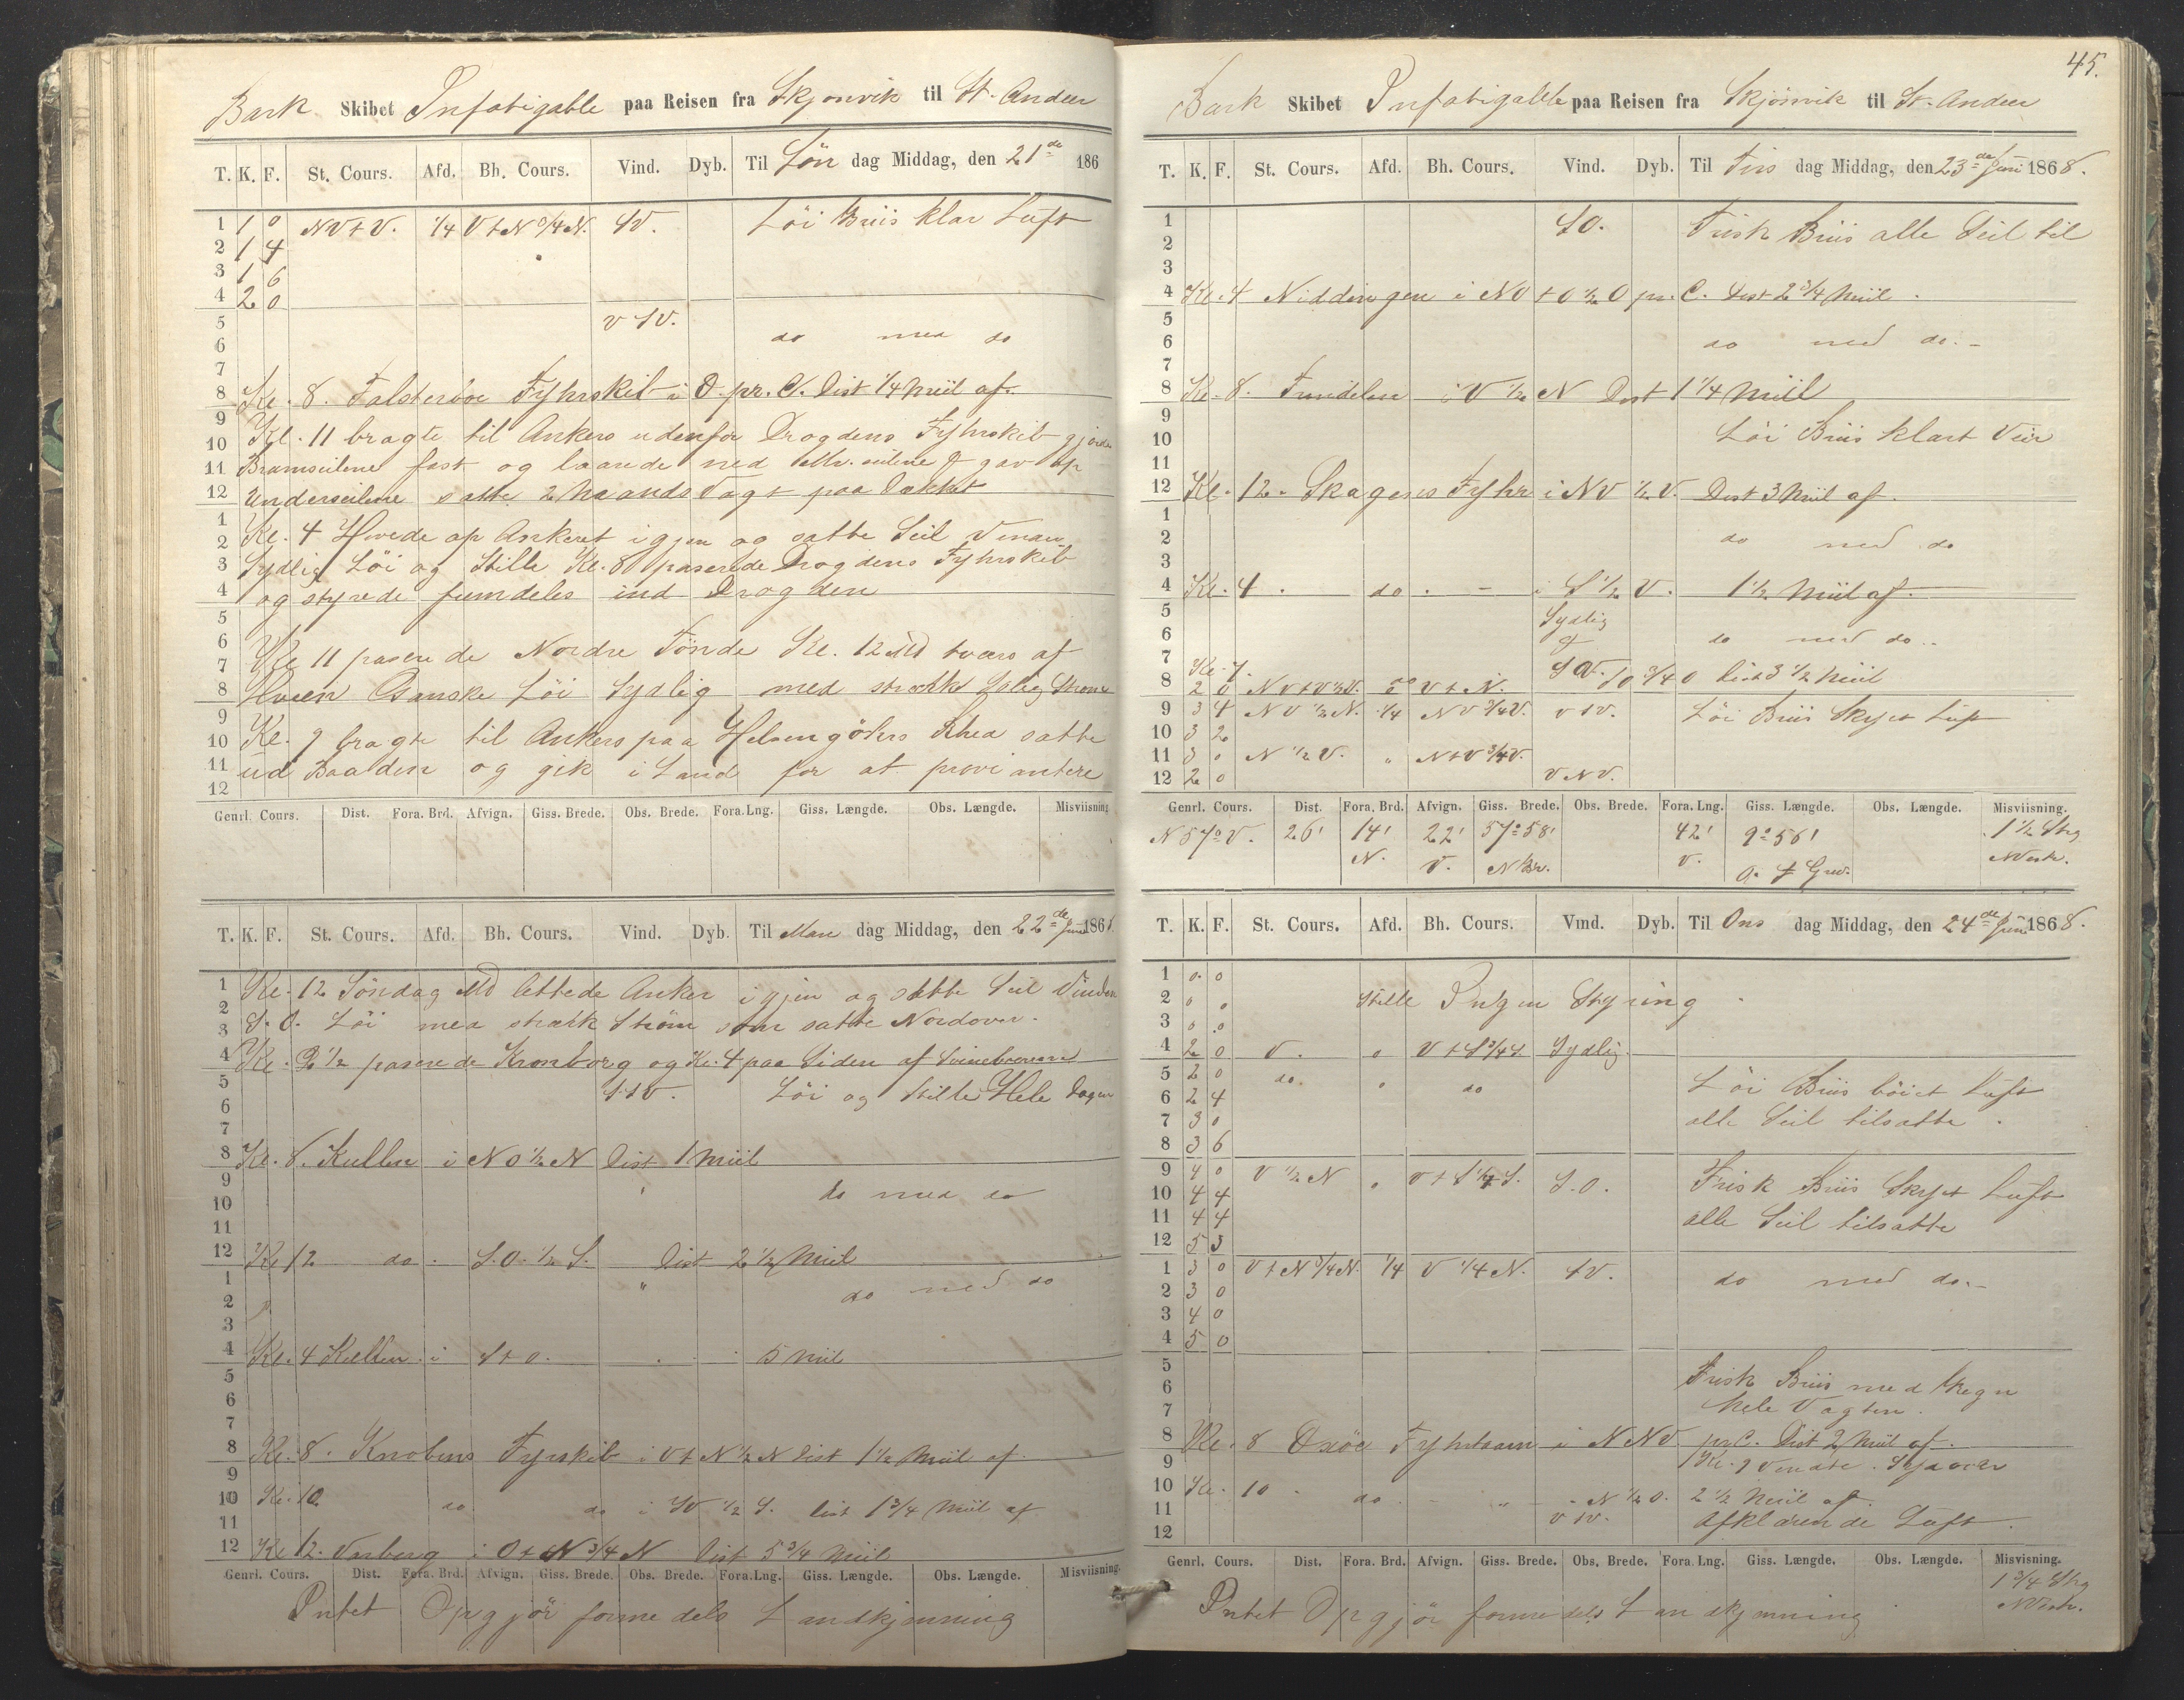 Bark Skibet Infatigable paa Reisen fra Skjonvik til St. Ander
T. K. F. St. Cours. Afd. Bh. Cours. Vind. Dyb. Til Søn dag Middag, den 21de 186
1 1 0 NV t V. 1/4 V t N 3/4 N. SV. Löi Briis klar Luft
2 1 4
3 1 6
4 2 0
5 V SV.
6 do med do
7
8 Kl. 8. Falsterboe Fyhrskib i O. pr. C. Dist 1/4 Miil af.
9
10 Kl. 11 bragte til Ankers udenfor Drogdens Fyhrskib gjorde
11 Bramseilene fast og laarede ned Mr. seilene & gav op
12 Underseilene satte 2 Maands Vagt paa Dækket
1
2 Kl. 4 Hivede op Ankeret igjen og satte Seil Vinden
3 Sydlig Löi og Stille Kl. 8 paserede Drogdens Fyhrskib
4 og styrede fremdeles ind Drogden
5
6
7 Kl 11 paserede Nordre Tönde Kl. 12 Md tværs af
8 Hveen Ganske Löi Sydlig med stærk Sdlig Strøm
9
10 Kl. 9 bragte til Ankers paa Helsengöhrs Rhed satte
11 ud Baaden og gik i Land for at proviantere
12
Genrl. Cours. Dist. Fora. Brd. Afvign. Giss. Brede. Obs. Brede. Fora. Lng. Giss. Længde. Obs. Længde. Misviisning
T. K. F. St. Cours. Afd. Bh. Cours. Vind. Dyb. Til Man dag Middag, den 22de Juni 1868
1 Kl. 12 Söndag Md lettede Anker igjen og satte Seil Vinden
2
3 S. O. Löi med stærk Ström som satte Nordover.
4 Kl. 2 1/2 paserede Kronborg og Kl. 4 paa Siden af
5 SSV. Löi og Stille Hele Dagen
6
7
8 Kl. 8. Kullen i NO 1/2 N Dist 1 Miil
9
10 do med do
11
12 Kl 12 do. S.O. 1/2 S. Dist 2 1/2 Miil
1 " do med do
2
3
4 Kl. 4 Kullen i S t O. 5 Miil
5
6
7
8 Kl. 8. Knobens Fyrskib i V t N 1/2 N Dist 1 1/2 Miil af.
9
10 Kl. 10. do do i SV 1/2 S. Dist 1 3/4 Miil af
11
12 Kl 12. Varberg i O t N 3/4 N Dist 5 3/4 Miil
Genrl. Cours. Dist. Fora. Brd. Afvign. Giss. Brede. Obs. Brede. Fora. Lng. Giss. Længde. Obs. Længde. Misviisning
Intet Opgjör formedels Landkjenning
45.
Bark Skibet Infatigable paa Reisen fra Skjönvik til St. Ander
T. K. F. St. Cours. Afd. Bh. Cours. Vind. Dyb. Til Tirs dag Middag, den 23de Juni 1868.
1 SO. Frisk Briis alle Seil til
2
3
4 Kl. 4 Niddingen i NO t O 1/2 O pr. C. Dist 2 3/4 Miil.
5
6 do med do.
7
8 Kl. 8. Trindelen i V 1/2 N Dist 1 1/4 Miil
9
10 Löi Briis klart Veir
11
12 Kl. 12. Skagens Fyhr i NV 1/2 V. Dist 3 Miil af.
1
2 do med do
3
4 Kl. 4. do. i S 1/2 V. 1 1/2 Miil af.
5 Sydlig
6 & do med do..
7 Kl. 7. SV. SO 3/4 O Dist 3 1/2 Miil
8 2 0 NV t V 1/2 V. V t N.
9 3 4 NV 1/2 N. 1/4 NV 3/4 V. V SV. Löi Briis Skyet Luft
10 3 2
11 3 0 N 1/2 V. " N t V 3/4 V.
12 2 0 V NV.
Genrl. Cours. Dist. Fora. Brd. Afvign. Giss. Brede. Obs. Brede. Fora. Lng. Giss. Længde. Obs. Længde. Misviisning.
N 57° V. 26' 14' 22' 57° 58' 42' 9° 56' 1 1/2 Streg
N. V. N Br. V. O. f Grw. NVestr.
T. K. F. St. Cours. Afd. Bh. Cours. Vind. Dyb. Til Ons dag Middag, den 24de Juni 1868.
1 0 0
2 0 0 Stille Ingen Styring
3 0 0
4 2 0 V. 0 V t S 3/4 S. Sydlig
5 2 0 do 0 do Löi Briis böiet Luft
6 2 4
7 3 0 alle Seil tilsatte.
8 3 6
9 4 0 V 1/2 N 0 V t S 1/4 S. S.O. Frisk Briis Skyet Luft
10 4 4
11 4 4 alle Seil tilsatte
12 5 3
1 3 0 V t N 3/4 N. 1/4 V 1/4 N. SV. do med do.
2 3 0
3 4 0
4 5 0
5 Frisk Briis med Regn
6
7 hele Vagten.
8 Kl. 8 Oxöe Fyhrtaarn i NNV pr C. Dist 2 Miil af.
9 Kl. 9 vendte Sjøover
10 Kl. 10. do. " N 1/2 O. 2 1/2 Miil af.
11 V SV. Afklarende Luft.
12
Genrl. Cours. Dist. Fora. Brd. Afvign. Giss. Brede. Obs. Brede. Fora. Lng. Giss. Længde. Obs. Længde. Misvisning.
1 3/4 Streg
Intet Opgjör formedels Landkjenning NVestr.